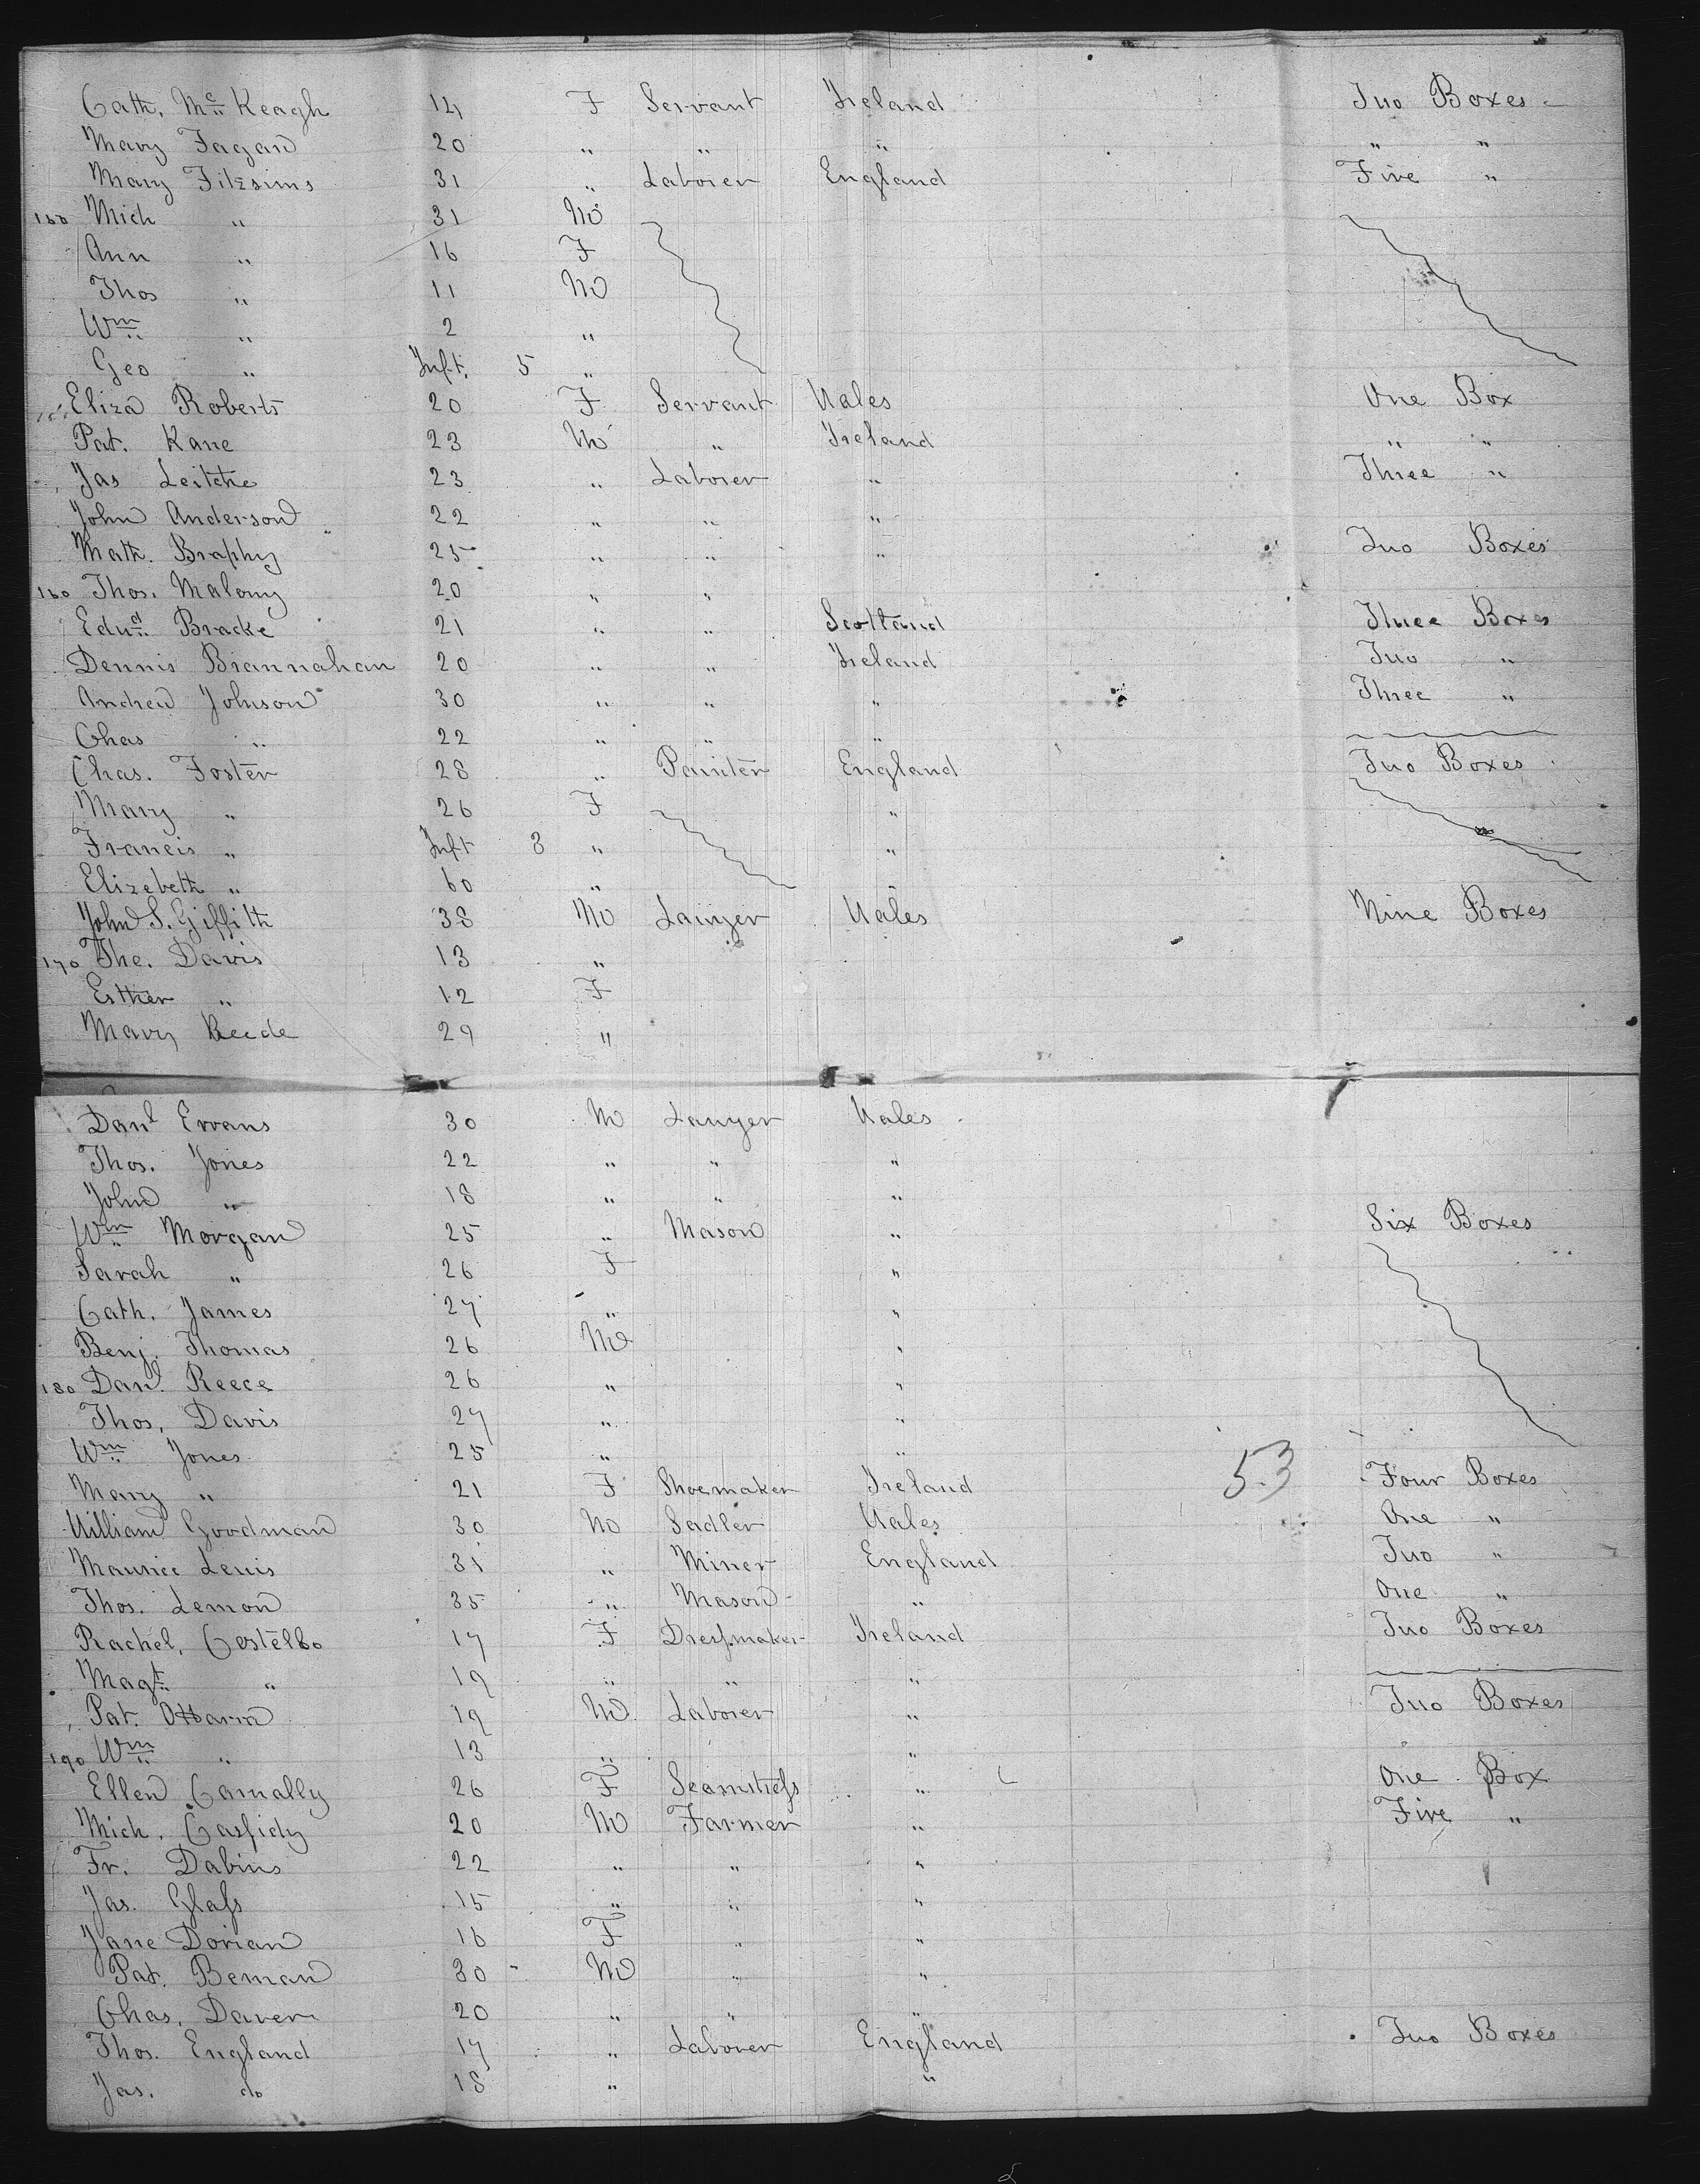 Cath. Mc Keagh 14 F Servant Ireland Two Boxes
Mary Fagan 20 " " " " "
Mary Fitzsims 31 " Laborer England Five "
150 Mich " 31 M
Ann " 16 F
Thos " 11 M
Wm " 2 "
Geo " Inft. 5 "
Eliza Roberts 20 F Servant Wales One Box
Pat. Kane 23 M " Ireland " "
Jas Leitche 23 " Laborer " Three "
John Anderson 22 " " "
Math. Braphy 25 " " " Two Boxes
160 Thos. Malony 20 " "
Edwd. Bracke 21 " " Scotland Three Boxes
Dennis Brannahan 20 " " Ireland Two "
Andrew Johnson 30 " " " Three "
Chas " 22 " " "
Chas. Foster 28 " Painter England Two Boxes
Mary " 26 F "
Francis " Inft 3 " "
Elizebeth " 60 " "
John S. Giffith 38 M Lawyer Wales Nine Boxes
170 The. Davis 13 "
Esther " 12 F
Mary Reede 29 "
Danl Evvans 30 M Lawyer Wales
Thos. Jones 22 " " "
John " 18 " " "
Wm Morgan 25 " Mason " Six Boxes
Sarah " 26 F "
Cath. James 27 " "
Benj. Thomas 26 M "
180 Danl. Reece 26 " "
Thos. Davis 27 " "
Wm Jones 25 " "
Mary " 21 F Shoemaker Ireland 53 Four Boxes
William Goodman 30 M Sadler Wales One "
Maurice Lewis 31 " Miner England Two "
Thos. Lemon 35 " Mason " One "
Rachel. Costello 17 F Dressmaker Ireland Two Boxes
Magt. " 19 " " "
Pat. OHarra 19 M Laborer " Two Boxes
190 Wm " 13 " "
Ellen Camally 26 F Seamstress " One Box
Mich. Cassidy 20 M Farmer " Five "
Fr. Dabins 22 " " "
Jas. Glass 15 " " "
Jane Dorian 16 F " "
Pat. Beman 30 M " "
Chas. Daver 20 " " "
Thos. England 17 " Laborer England Two Boxes
Jas. do 18 " "